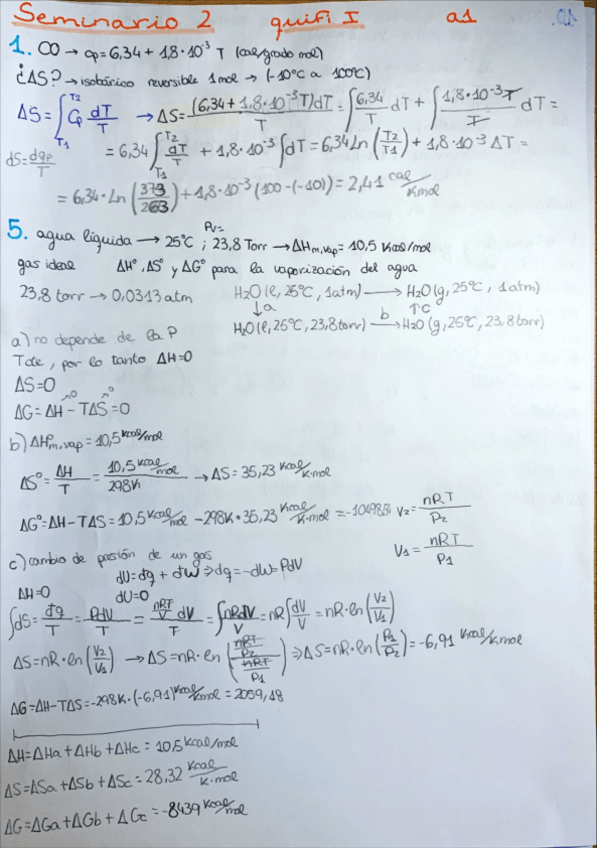 Seminario 2 quifi I a1
1. CO → cp = 6,34 + 1,8·10⁻³ T (cal/grado mol)
¿ΔS? → isobárico reversible 1mol → (-10°C a 100°C)
ΔS = ∫T1T2 Cp dT/T → ΔS = (6,34 + 1,8·10⁻³ T)dT/T = ∫6,34/T dT + ∫1,8·10⁻³T/T dT =
dS = dqp/T = 6,34 ∫T1T2 dT/T + 1,8·10⁻³ ∫dT = 6,34 Ln (T2/T1) + 1,8·10⁻³ ΔT =
= 6,34·Ln (373/263) + 1,8·10⁻³ (100-(-10)) = 2,41 cal/Kmol
5. agua líquida → 25°C ; Pv= 23,8 Torr → ΔHm,vap = 10,5 Kcal/mol
gas ideal ΔH°, ΔS° y ΔG° para la vaporización del agua
23,8 torr → 0,0313 atm H₂O (l, 25°C, 1atm) → H₂O (g, 25°C, 1 atm)
↓a ↑c
H₂O (l, 25°C, 23,8 torr) b→ H₂O (g, 25°C, 23,8 torr)
a) no depende de la P
T cte, por lo tanto ΔH=0
ΔS=0
ΔG = ΔH - TΔS = 0
b) ΔH°m,vap = 10,5 Kcal/mol
ΔS° = ΔH/T = 10,5 Kcal/mol / 298K → ΔS = 35,23 Kcal/K·mol
ΔG° = ΔH - TΔS = 10,5 Kcal/mol - 298K · 35,23 Kcal/K·mol = V2 = nRT/P2
V1 = nRT/P1
c) cambio de presión de un gas
dU = đq + đW ⇒ dq = -dW = PdV
ΔH=0 dU=0
∫dS = đq/T = PdV/T = nRT/V dV/T = ∫nRdV/V = nR∫dV/V = nR·ln (V2/V1)
ΔS = nR·ln (V2/V1) → ΔS = nR·ln (nRT/P2 / nRT/P1) ⇒ ΔS = nR·ln (P1/P2) = -6,91 Kcal/K·mol
ΔG = ΔH - TΔS = -298K·(-6,91) Kcal/Kmol = 2059,18
ΔH = ΔHa + ΔHb + ΔHc = 10,5 Kcal/mol
ΔS = ΔSa + ΔSb + ΔSc = 28,32 Kcal/K·mol
ΔG = ΔGa + ΔGb + ΔGc = -8439 Kcal/mol